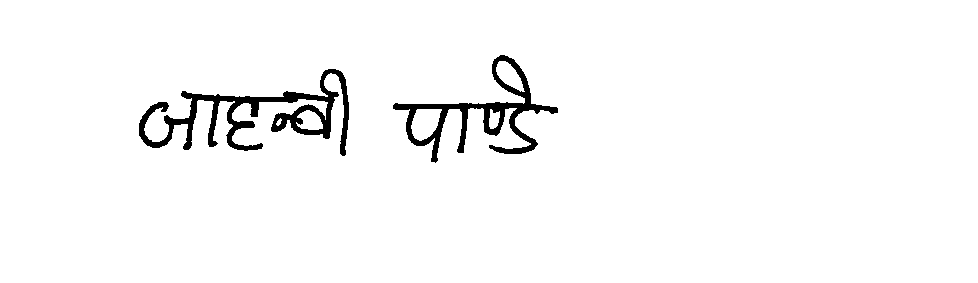 जाहन्वी पाण्डे